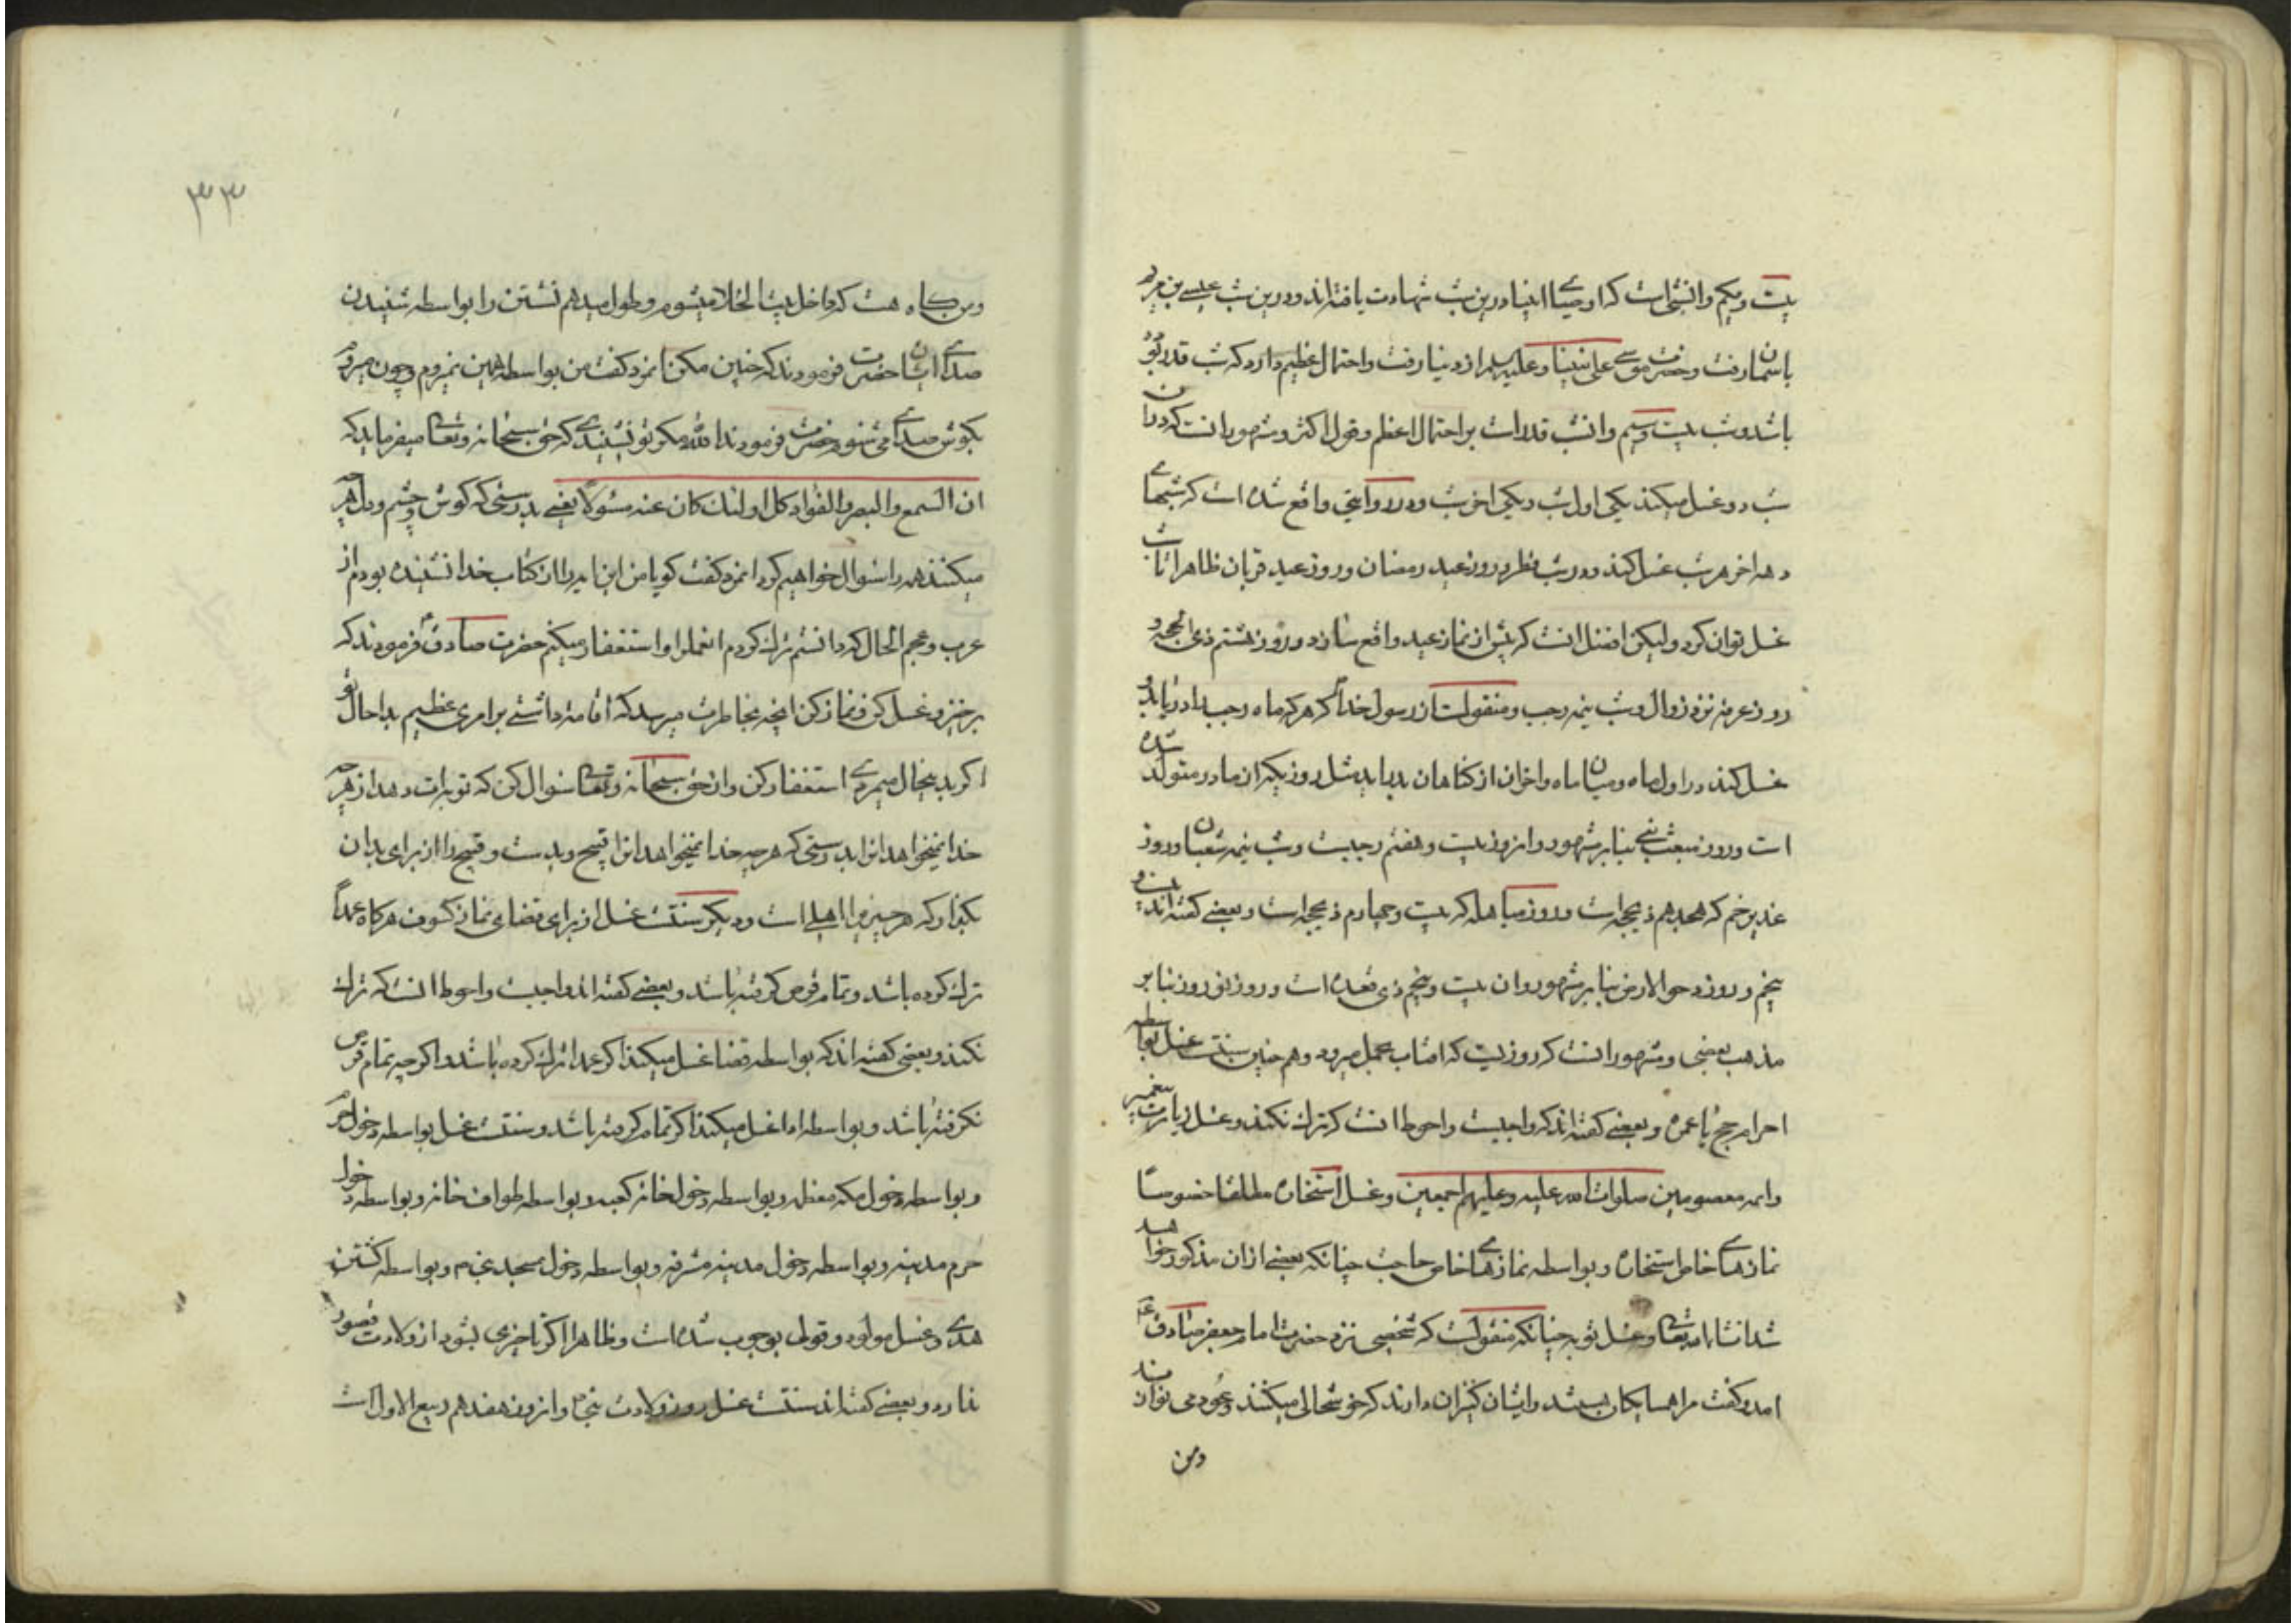 بیست ویکم وآن شبی است که اوصیای انبیا درین شب شهادت یافته اند ودرین شب عیسی بن مریم
باسمان رفت وحضرت موسی علی نبینا وعلیه السلم از دنیا رفت واحتمال عظیم دارد که شب قدر بوده
باشد وشب بیست وسیم وآن شب قدر است بر احتمال اعظم وقول اکثر ومشهور آنست که در آن
شب دو غسل میکند یکی اول شب ویکی اخر شب ودر روایتی واقع شده است که شبهای
دهه اخر هر شب غسل کند ودر شب فطر وروز عید رمضان وروز عید قربان ظاهرا تا شب
غسل توان کرد ولیکن افضل انست که پیش از نماز عید واقع سازد ودر روز هشتم ذی الحجه و
روز عرفه نزد زوال وشب نیمه رجب ومنقولست از رسول خدا که هر که ماه رجب را دریابد و
غسل کند در اول ماه ومیان ماه واخر آن از کناهان بدر آید مثل روزیکه از مادر متولد شده
است وروز مبعث نبی بنا بر مشهور وآن روز بیست وهفتم رجبست وشب نیمه شعبان وروز
غدیر خم که هجدهم ذیحجه است وروز مباهله که بیست وچهارم ذیحجه است وبعضی کفته اند بیست و
پنجم وروز دحو الارض بنا بر مشهور وآن بیست وپنجم ذی قعده است وروز نوروز بنا بر
مذهب بعضی ومشهور انست که روزیست که افتاب بحمل میرود وهم چنین سنتست غسل بواسطه
احرام حج یا عمره وبعضی کفته اند که واجبست واحوط انست که ترک نکند وغسل زیارت پیغمبر
وایمه معصومین صلوات الله علیه وعلیهم اجمعین وغسل استخاره مطلقا خصوصاً
نمازهای خاص استخاره وبواسطه نمازهای خاص حاجت چنانکه بعضی ازان مذکور خواهد
شد انشاء الله تعالی وغسل توبه چنانکه منقولست که شخصی نزد حضرت امام جعفر صادق ع
امد وکفت مرا همسایکان هستند وایشان کنیزان دارند که خوشحالی میکنند وعود می نوازند
ومن
۳۳
ومن کاه هست که داخل بیت الخلا میشوم وطول میدهم نشستن را بواسطه شنیدن
صدای ایشان حضرت فرمودند که چنین مکن انمرد کفت من بواسطه همین نمیروم وچون میروم
بکوش صدای می شنوم حضرت فرمودند الله مکر تو نشنیدی که حق سبحانه وتعالی میفرماید که
ان السمع والبصر والفؤاد کل اولئک کان عنه مسئولاً یعنی بدرستی که کوش وچشم ودل هرچه
میکنند همه را سوال خواهیم کرد انمرد کفت کویا من این ایه را از کتاب خدا نشنیده بودم از
عرب وعجم الحال که دانستم ترک کردم انعمل را واستغفار میکنم حضرت صادق فرمودند که
برخیز وغسل کن ونماز کن انچه بخاطرت میرسد که اقامه داشتی بر امری عظیم بد احال تو
اکر بدینحال میمردی استغفار کن واز حق سبحانه وتعالی سوال کن که توبه ات دهد از هرچه
خدا نمیخواهد انرا بدرستی که هر چه خدا نمیخواهد انرا قبیح وبدست وقبیح را از برای بدان
بکذار که هر چیز را اهلی است ودیکر سنتست غسل از برای قضای نماز کسوف هرکاه عمداً
ترک کرده باشد وتمام قرص کرفته باشد وبعضی کفته اند واجبست واحوط انست که ترک
نکند وبعضی کفته اند که بواسطه قضا غسل میکند اکر عمدا ترک کرده باشد واکرچه تمام قرص
نکرفته باشد وبواسطه ادا غسل میکند اکر تمام کرفته باشد وسنتست غسل بواسطه دخول حرم
وبواسطه دخول مکه معظمه وبواسطه دخول خانه کعبه وبواسطه طواف خانه وبواسطه دخول
حرم مدینه وبواسطه دخول مدینه مشرفه وبواسطه دخول مسجد نبی م وبواسطه کشتن
هدی وغسل مولود وقولی بوجوب شده است وظاهرا اکر تاخیری بشود از ولادت قصور
ندارد وبعضی کفته اند سنتست غسل روز ولادت نبی وآن روز هفدهم ربیع الاول است